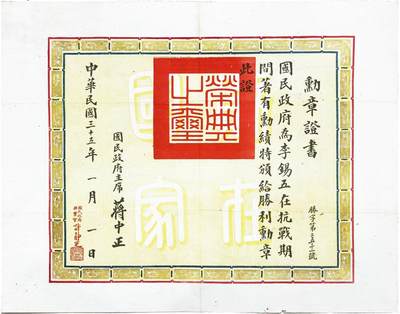 勳章證書
國民政府為李錫五在抗戰期
間著有勳績特頒給勝利勳章
此證
勝字第
號
榮典之璽
國民政府主席 蔣中正
中華民國三十五年 一月 一日
國家